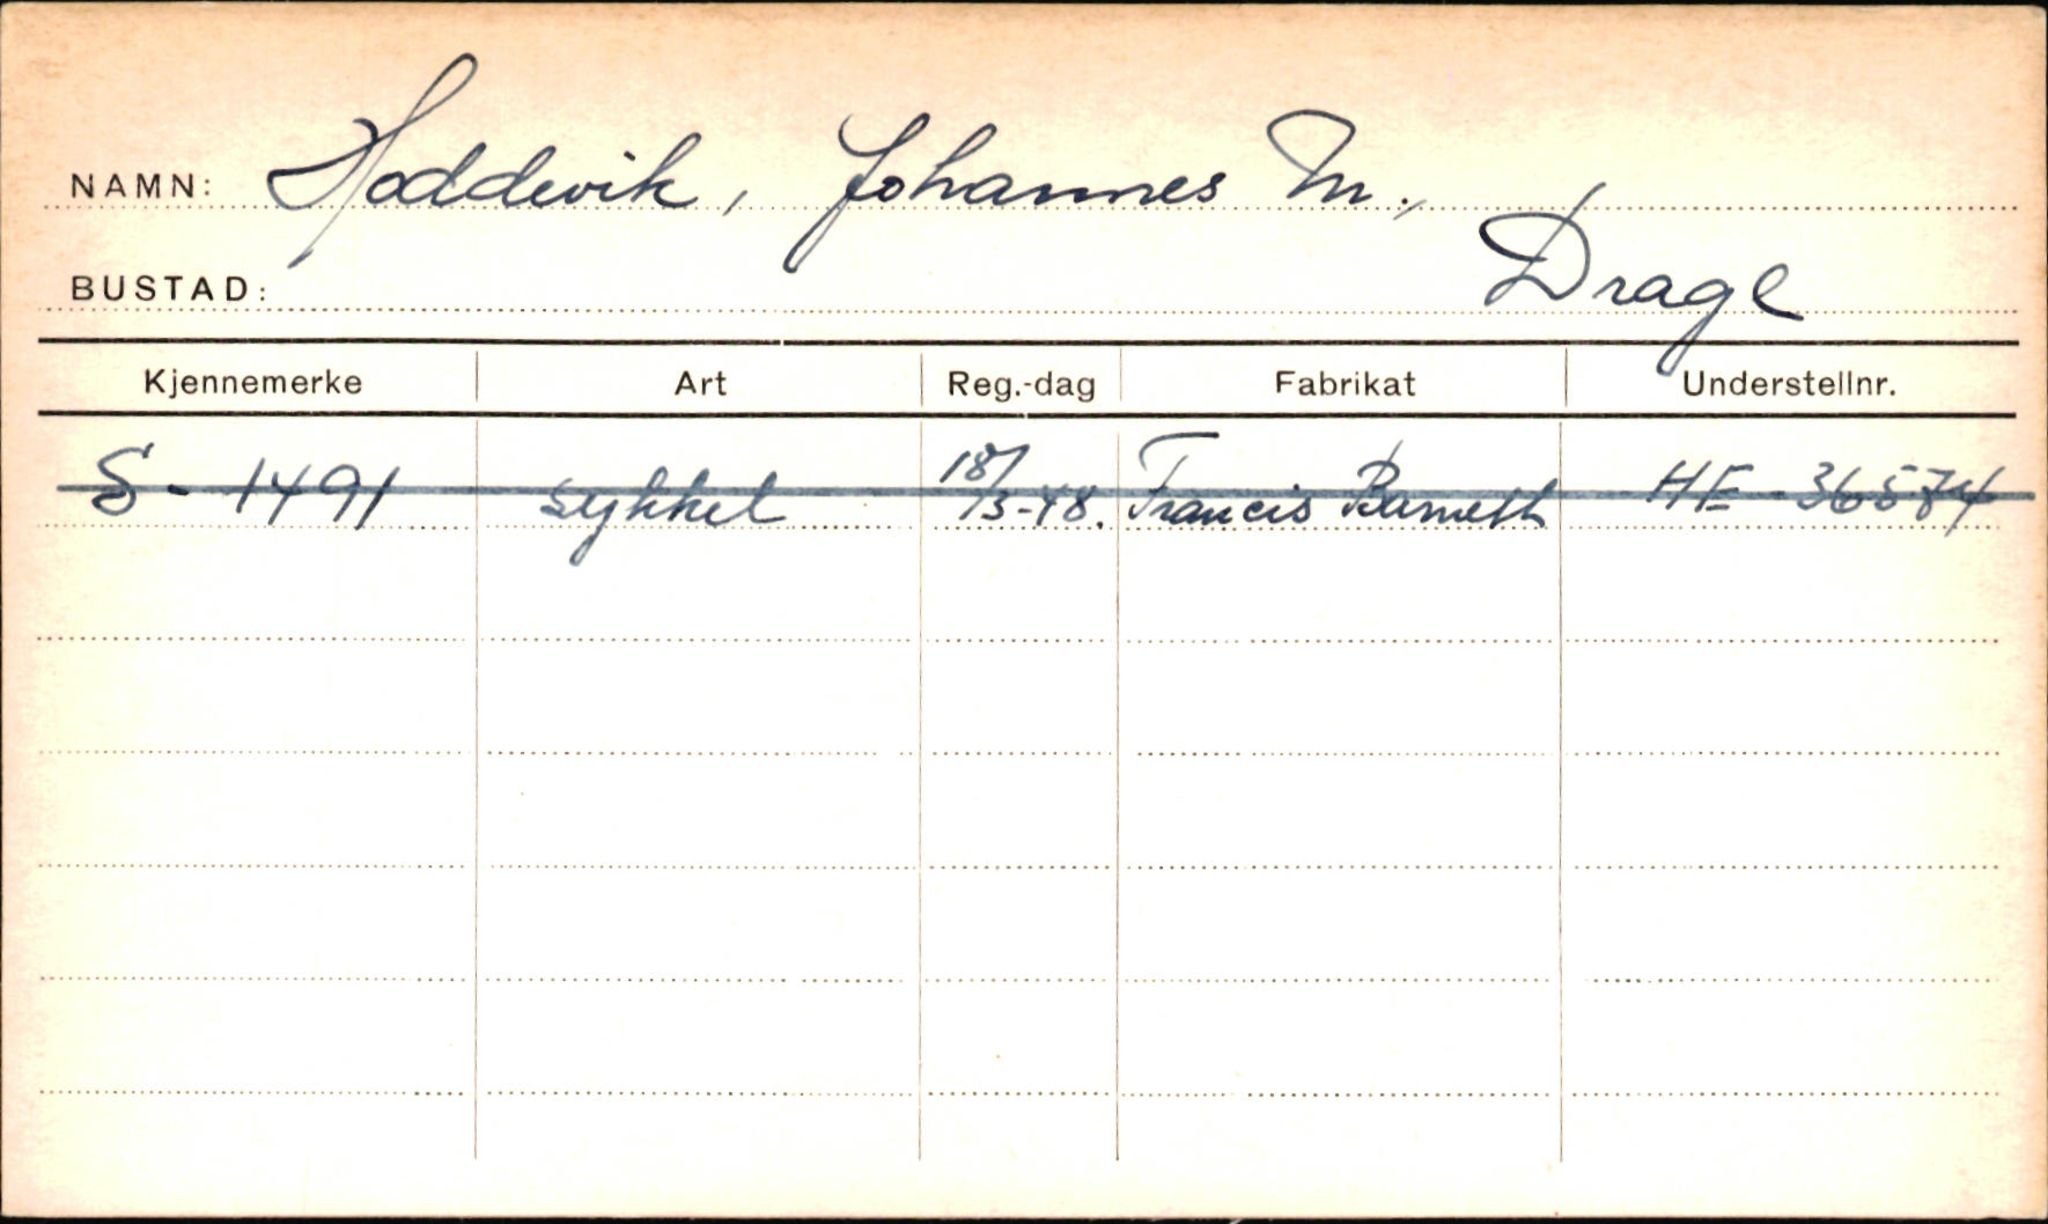 NAMN: Hoddevik, Johannes M.,
BUSTAD: Drage
Kjennemerke Art Reg.-dag Fabrikat Understellnr.
S - 1491 sykkel 18/3-48. Francis Barneth HE 36574